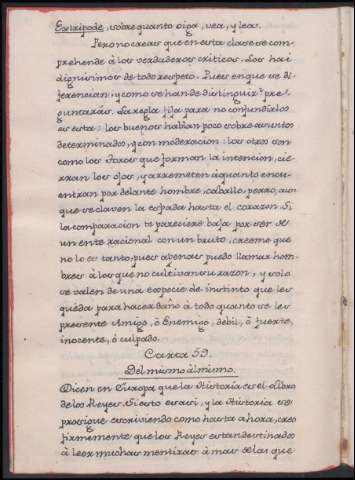 Estripode, sobre quanto oiga, vea, y lea.
Pero no creas que en esta clase se com-
prehende à los verdaderos criticos. Los hai
dignisimos de todo respeto. Pues en que se di-
ferencian, y como se han de distinguir? pre-
guntaràs. La regla fija para no confundirlos
es esta: los buenos hablan poco sobre asuntos
determinados, y con moderacion: los otros son
como los Toros que forman la intencion, cie-
rran los ojos, y arremeten à quanto encu-
entran por delante hombre, caballo, perro, aun
que se claven la espada hasta el corazon. Si
la comparacion te pareciere baja por ser de
un ente racional con un bruto, creeme que
no lo es tanto, pues apenas puedo llamar hom-
bres à los que no cultivan su razon; y solo
se valen de una especie de instinto que les
queda para hacer daño à todo quanto se les
presente Amigo, ò Enemigo, debil, ò fuerte,
inocente, ò culpado.
Carta 59.
Del mismo àl mismo.
Dicen en Europa que la Historia es el Libro
de los Reyes. Si esto es asi, y la Historia se
prosigue escriviendo como hasta ahora, creo
firmemente que los Reyes estan destinados
à leer muchas mentiras à mas de las que